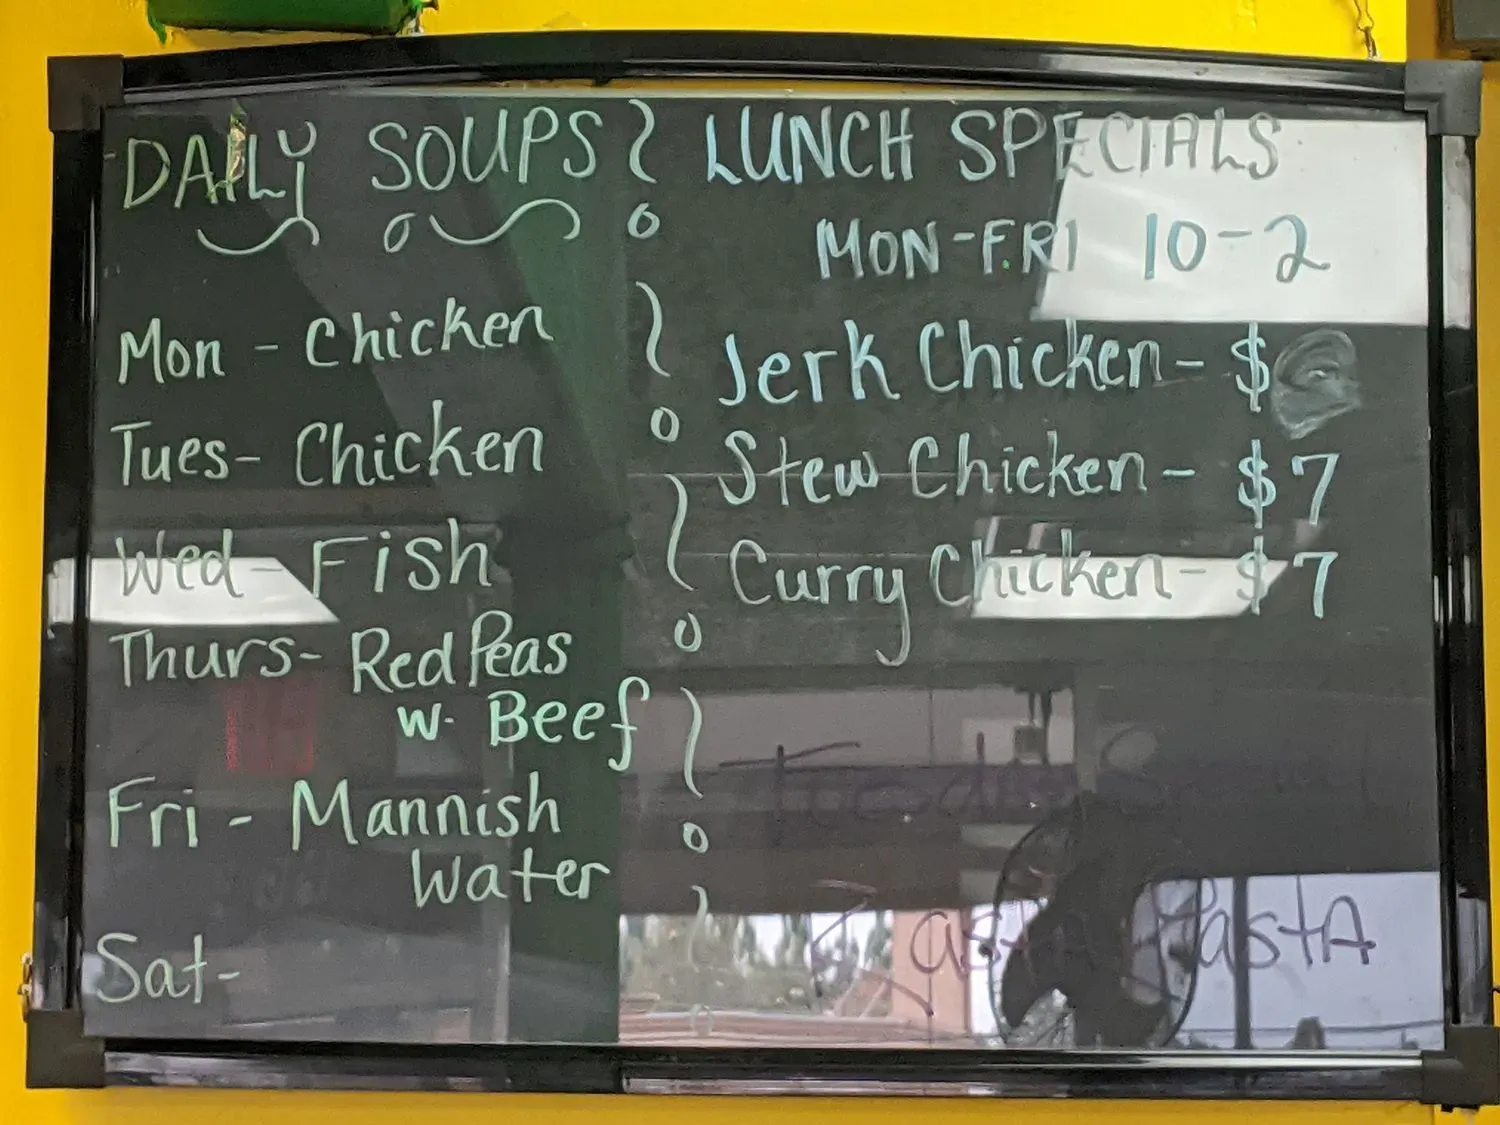 DAILY SOUPS
Mon - Chicken
Tues - Chicken
Wed - Fish
Thurs - Red Peas
w. Beef
Fri - Mannish
Water
Sat -
LUNCH SPECIALS
MON-FRI 10-2
Jerk Chicken - $
Stew Chicken - $7
Curry Chicken - $7
Tuesday Special
Rasta Pasta